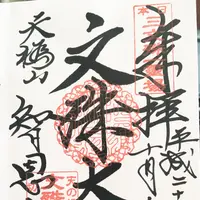 奉拝
平成二十
十月
文殊大
天橋山
智恩